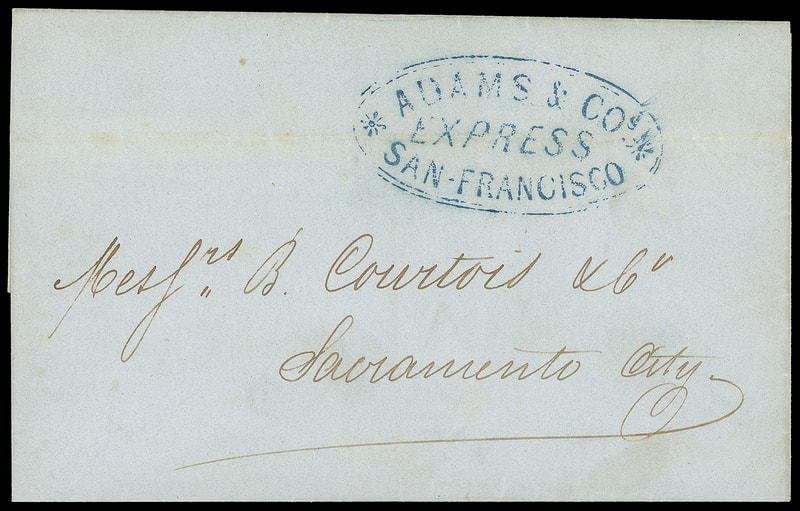 ADAMS & COS
EXPRESS
SAN-FRANCISCO
Messrs B. Courtois & Co
Sacramento City